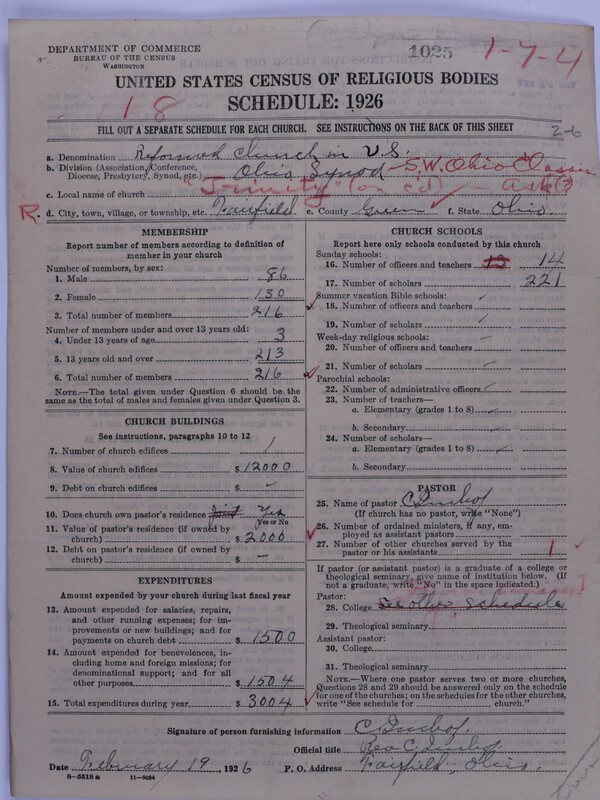 DEPARTMENT OF COMMERCE
BUREAU OF THE CENSUS
WASHINGTON
1025
1-7-4
UNITED STATES CENSUS OF RELIGIOUS BODIES
SCHEDULE: 1926
18
FILL OUT A SEPARATE SCHEDULE FOR EACH CHURCH. SEE INSTRUCTIONS ON THE BACK OF THIS SHEET
2-6
a. Denomination Reformed Church in U.S.
b. Division (Association, Conference, Diocese, Presbytery, Synod, etc.) Ohio Synod - S.W. Ohio Classis
c. Local name of church "Trinity" (on cd) - ask(?)
R. d. City, town, village, or township, etc. Fairfield e. County Green f. State Ohio.
MEMBERSHIP
Report number of members according to definition of
member in your church
Number of members, by sex:
1. Male 86
2. Female 130
3. Total number of members 216
Number of members under and over 13 years old:
4. Under 13 years of age 3
5. 13 years old and over 213
6. Total number of members 216
NOTE.—The total given under Question 6 should be
same as the total of males and females given under Question 3.
CHURCH BUILDINGS
See instructions, paragraphs 10 to 12
7. Number of church edifices 1
8. Value of church edifices $ 12000
9. Debt on church edifices $ -
10. Does church own pastor's residence Yes
Yes or No
11. Value of pastor's residence (if owned by
church) $ 2000
12. Debt on pastor's residence (if owned by
church) $ -
EXPENDITURES
Amount expended by your church during last fiscal year
13. Amount expended for salaries, repairs,
and other running expenses; for im-
provements or new buildings; and for
payments on church debt $ 1500
14. Amount expended for benevolences, in-
cluding home and foreign missions; for
denominational support; and for all
other purposes $ 1504
15. Total expenditures during year $ 3004
CHURCH SCHOOLS
Report here only schools conducted by this church
Sunday schools:
16. Number of officers and teachers 13 14
17. Number of scholars 221
Summer vacation Bible schools:
18. Number of officers and teachers
19. Number of scholars
Week-day religious schools:
20. Number of officers and teachers
21. Number of scholars
Parochial schools:
22. Number of administrative officers
23. Number of teachers—
a. Elementary (grades 1 to 8)
b. Secondary
24. Number of scholars—
a. Elementary (grades 1 to 8)
b. Secondary
PASTOR
25. Name of pastor
(If church has no pastor, write "None")
26. Number of ordained ministers, if any, em-
ployed as assistant pastors
27. Number of other churches served by the
pastor or his assistants 1
If pastor (or assistant pastor) is a graduate of a college or
theological seminary, give name of institution below. (If
not a graduate, write "No" in the space indicated.)
Pastor:
28. College See other schedule
29. Theological seminary
Assistant pastor:
30. College
31. Theological seminary
NOTE.—Where one pastor serves two or more churches,
Questions 28 and 29 should be answered only on the schedule
for one of the churches; on the schedules for the other churches,
write "See schedule for church."
Signature of person furnishing information
Official title Rev.
Date February 19, 1926 P. O. Address Fairfield, Ohio.
8—5518 a 11—9064